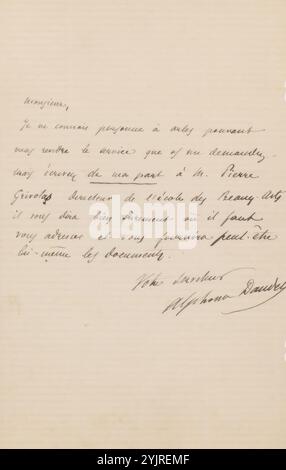 Monsieur,
Je ne connais personne à Arles pouvant
vous rendre le service que vous demandez
mais écrivez de ma part à M. Pierre
Grivolas directeur de l'école des Beaux-Arts
il vous dira bien où il faut
vous adresser et vous fournira peut-être
lui-même les documents.
Votre serviteur
Alphonse Daudet
alamy
Image ID: 2YJREMF
www.alamy.com